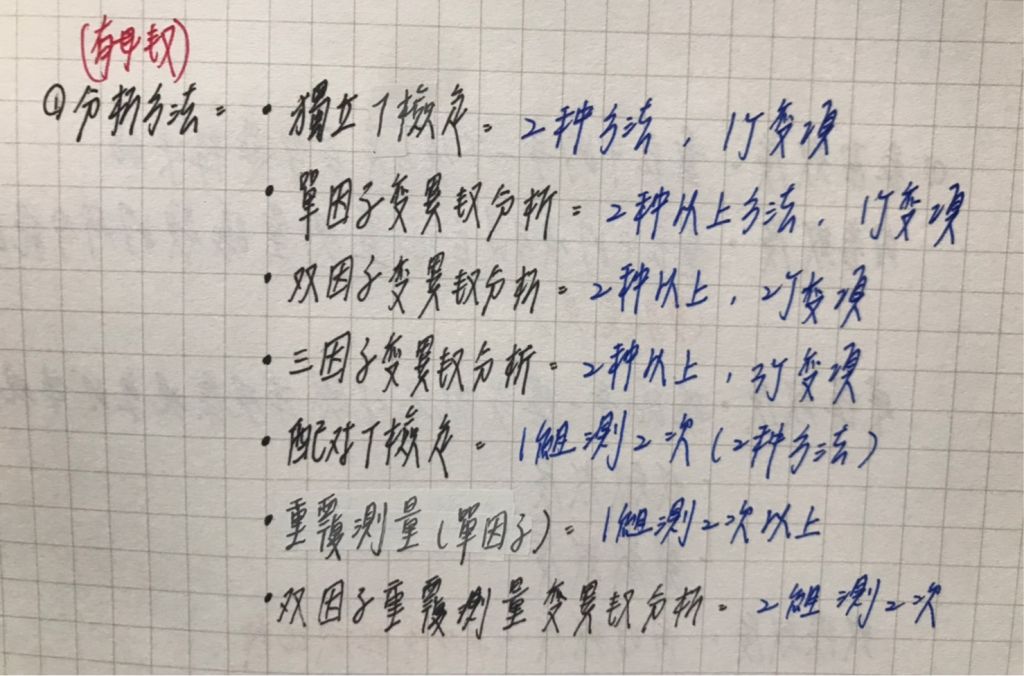 (有母数)
①分析方法= •獨立T檢定= 2种方法，1个变項
•單因子变異数分析= 2种以上方法，1个变項
•双因子变異数分析= 2种以上，2个变項
•三因子变異数分析= 2种以上，3个变項
•配对T檢定= 1組測2次(2种方法)
•重覆測量(單因子)= 1組測2次以上
•双因子重覆測量变異数分析= 2組測2次